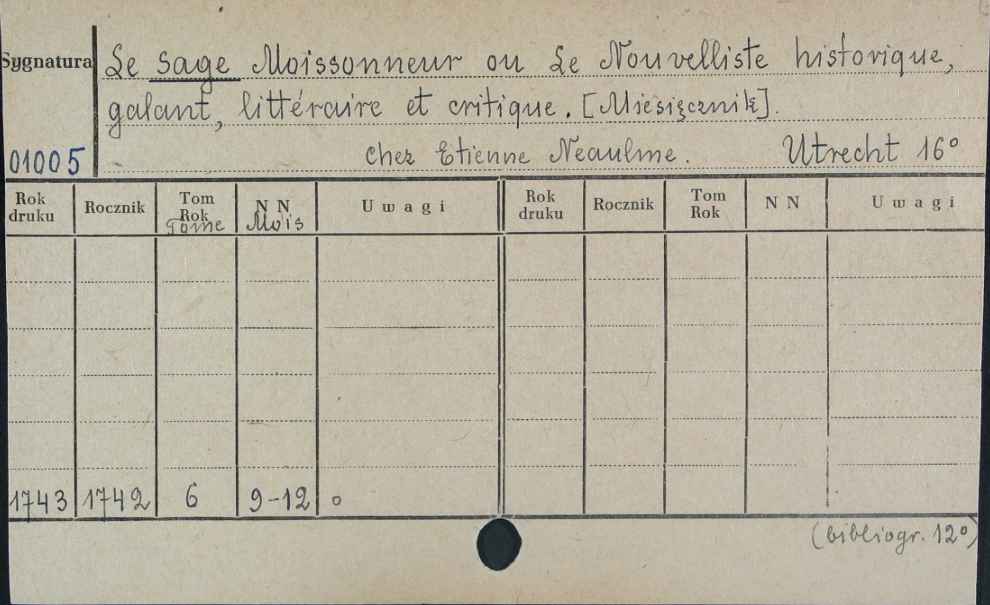 Sygnatura Le sage Moissonneur ou Le Nouvelliste historique,
galant, littéraire et critique. [Miesięcznik].
01005 chez Etienne Neaulme. Utrecht 16°
Rok druku Rocznik Tom Rok Tome N N Mois Uwagi Rok druku Rocznik Tom Rok N N Uwagi
1743 1742 6 9-12 °
(bibliogr. 12°)